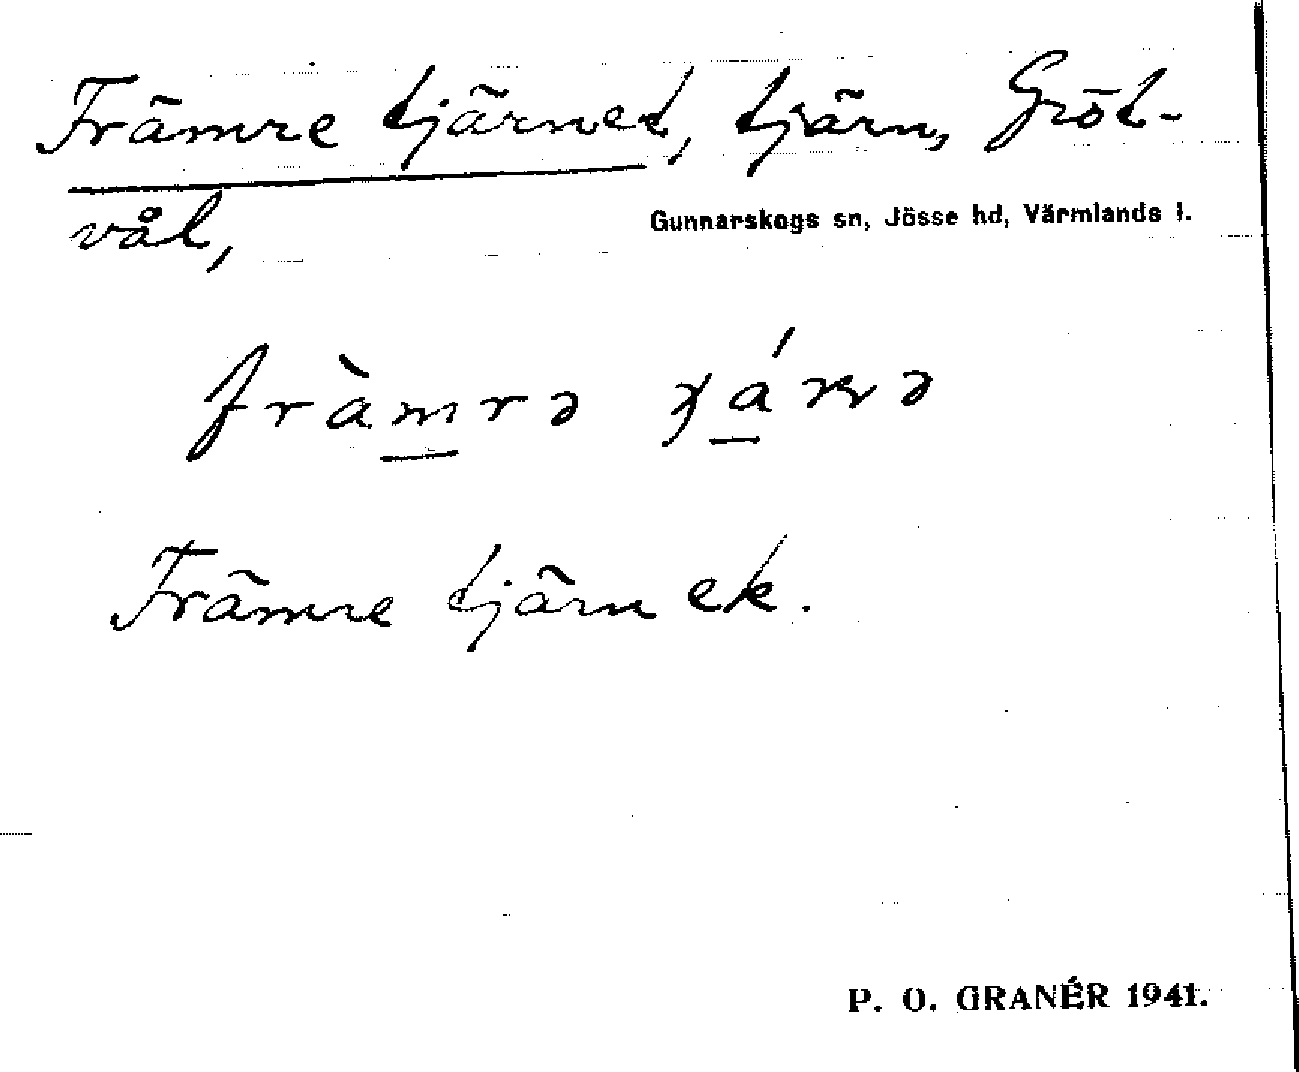 Främre tjärnet, tjärn, Gröt-
vål,
Gunnarskogs sn, Jösse hd, Värmlands l.
Främre tjärn ek.
P. O. GRANÉR 1941.